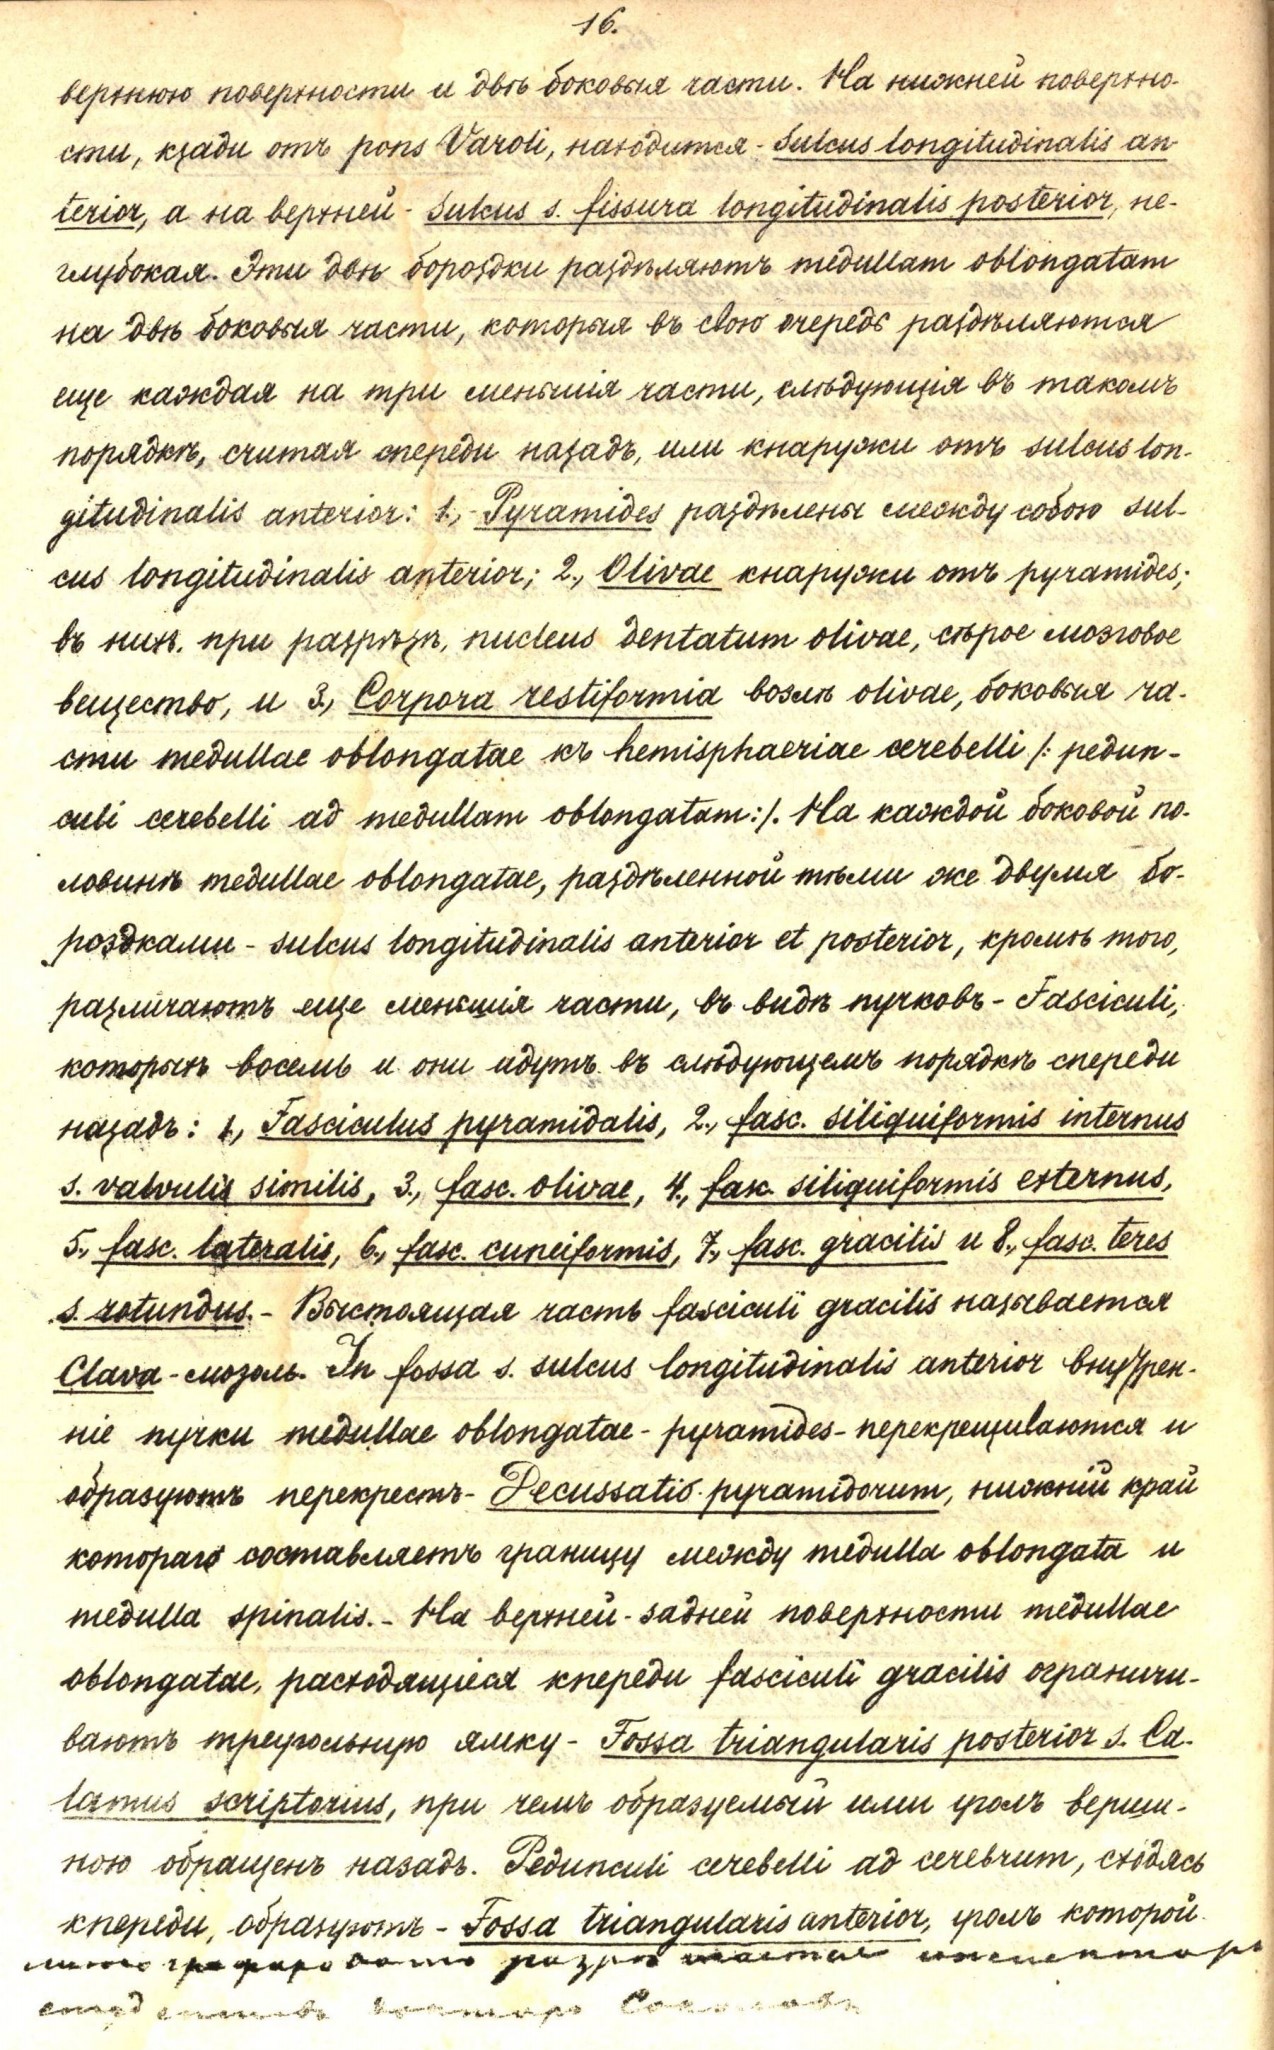 16.
верхнюю поверхности и двѣ боковыя части. На нижней поверхно-
сти, кзади отъ pons Varoli, находится - Sulcus longitudinalis an-
terior, а на верхней - Sulcus s. fissura longitudinalis posterior, не-
глубокая. Эти двѣ бороздки раздѣляютъ medullam oblongatam
на двѣ боковыя части, которыя въ свою очередь раздѣляются
еще каждая на три меньшія части, слѣдующія въ такомъ
порядкѣ, считая спереди назадъ, или кнаружи отъ sulcus lon-
gitudinalis anterior: 1., - Pyramides раздѣлены между собою sul-
cus longitudinalis anterior; 2., Olivae кнаружи отъ pyramides;
въ них. при разрѣзѣ, nucleus dentatum olivae, сѣрое мозговое
вещество, и 3., Corpora restiformia возлѣ olivae, боковыя ча-
сти medullae oblongatae къ hemisphaeriae cerebelli /: pedun-
culi cerebelli ad medullam oblongatam:/. На каждой боковой по-
ловинѣ medullae oblongatae, раздѣленной тѣми же двумя бо-
роздками - sulcus longitudinalis anterior et posterior, кромѣ того,
различаютъ еще меньшія части, въ видѣ пучковъ - Fasciculi,
которых восемь и они идутъ въ слѣдующемъ порядкѣ спереди
назадъ: 1., Fasciculus pyramidalis, 2., fasc. siliquiformis internus
s. valvulis similis, 3., fasc. olivae, 4., fasc. siliquiformis externus,
5., fasc. lateralis, 6., fasc. cuneiformis, 7., fasc. gracilis и 8., fasc. teres
s. rotundus. - Выстоящая часть fasciculi gracilis называется
Clava - мозоль. In fossa s. sulcus longitudinalis anterior внутрен-
ніе пучки medullae oblongatae - pyramides - перекрещиваются и
образуютъ перекрестъ - Decussatio pyramidorum, нижній край
котораго составляетъ границу между medulla oblongata и
medulla spinalis. - На верхней - задней поверхности medullae
oblongatae, расходящіеся кпереди fasciculi gracilis ограничи-
ваютъ треугольную ямку - Fossa triangularis posterior s. Ca-
lamus scriptorius, при чемъ образуемый ими уголъ верши-
ною обращенъ назадъ. Pedunculi cerebelli ad cerebrum, сходясь
кпереди, образуютъ - Fossa triangularis anterior, уголъ которой
литографировать разрѣшается инспекторъ
студентовъ докторъ Соколовъ